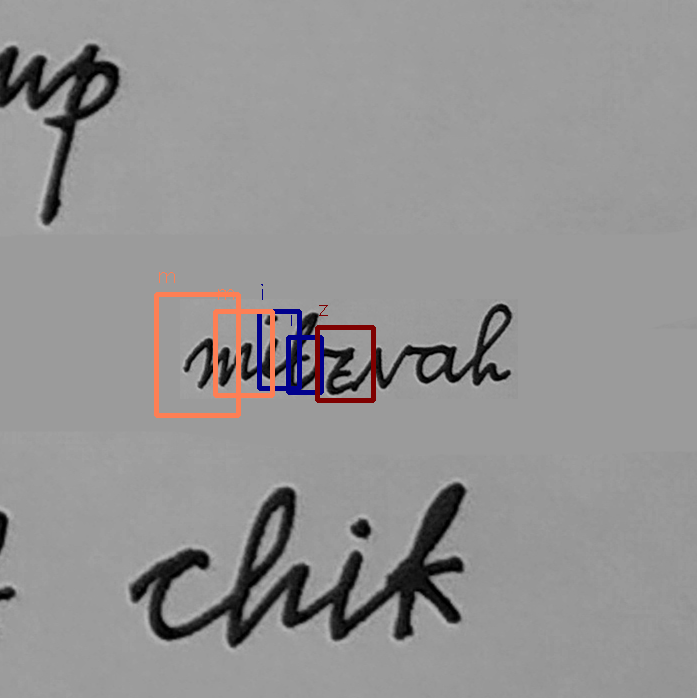 up
m i z
mitzvah
chik